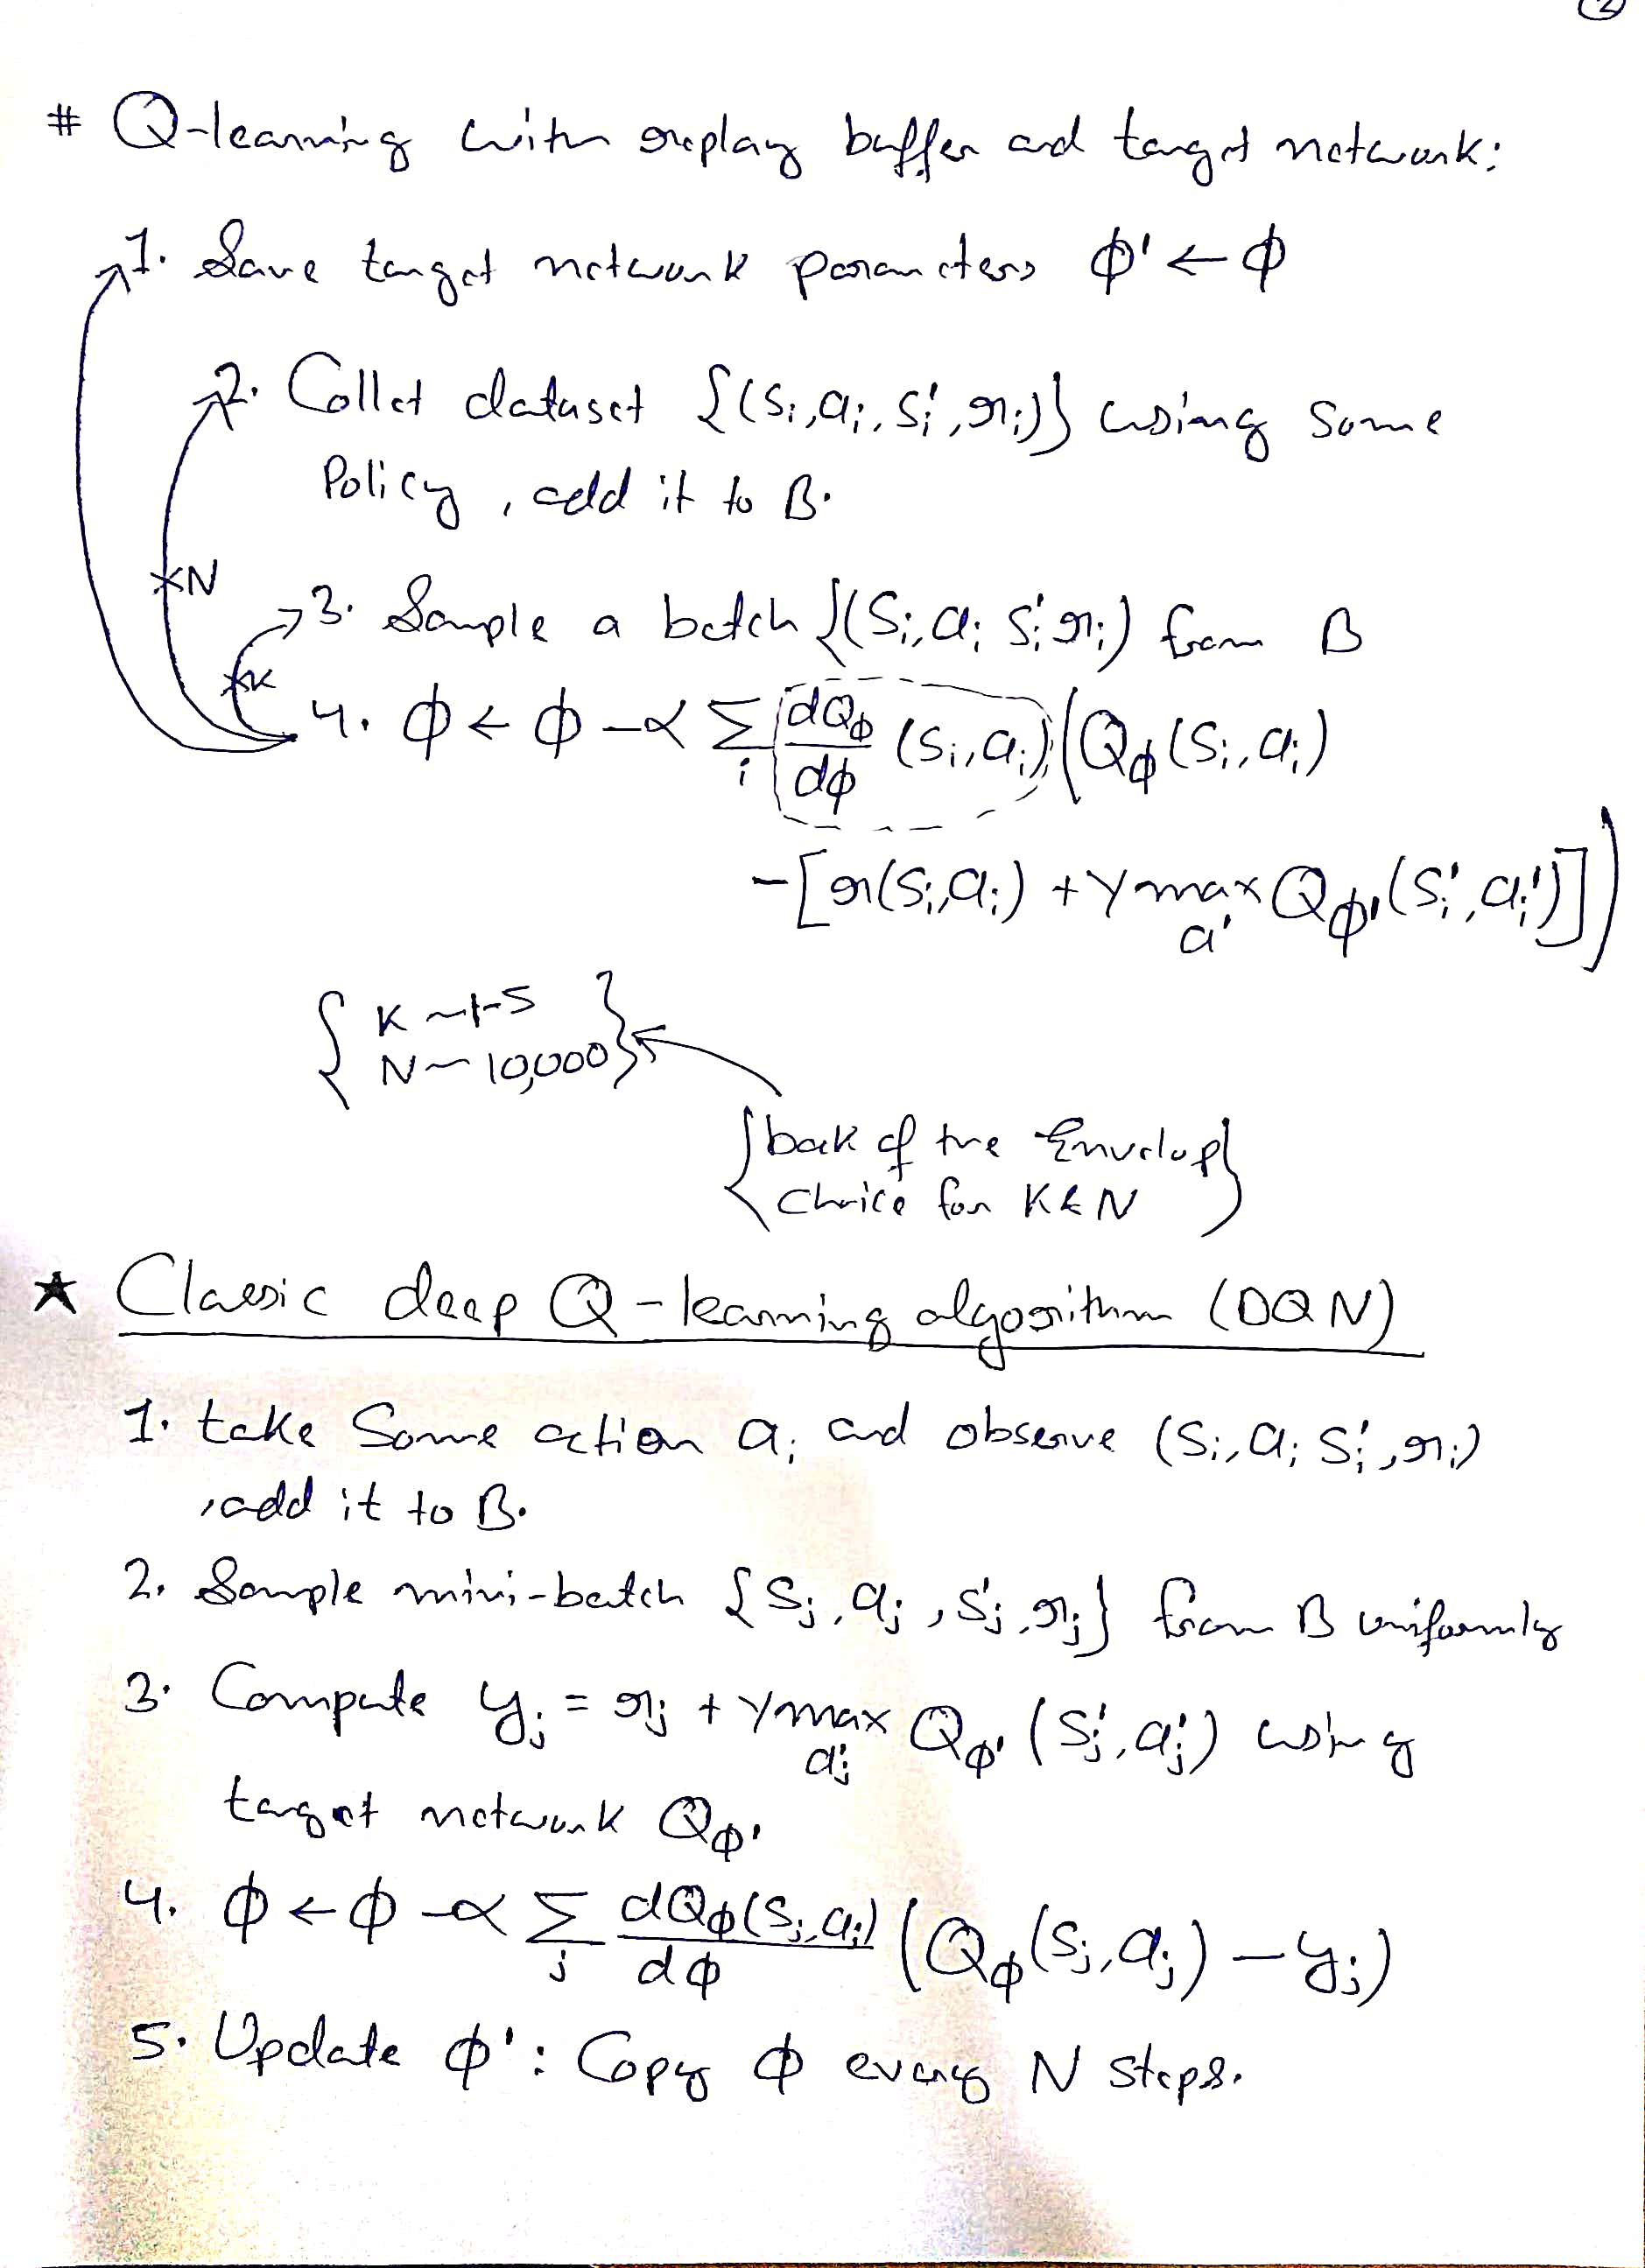 ②
# Q-learning with replay buffer and target network:
1. Save target network parameters ϕ' ← ϕ
2. Collet dataset {(Si, ai, Si', ri)} using some
Policy, add it to B.
×N
3. Sample a batch {(Si, ai Si' ri) from B
×K
4. ϕ ← ϕ - α Σi dQϕ/dϕ (Si, ai) (Qϕ(Si, ai)
-[r(Si, ai) + γ max a' Qϕ'(Si', ai')])
{ K ~ 1-5
N ~ 10,000 }
{ back of the Envelop
Choice for K & N }
★ Classic deep Q-learning algorithm (DQN)
1. take Some action ai and observe (Si, ai Si', ri)
, add it to B.
2. Sample mini-batch {Sj, aj, Sj', rj} from B uniformly
3. Compute yj = rj + γ max aj' Qϕ'(Sj', aj') using
target network Qϕ'
4. ϕ ← ϕ - α Σj dQϕ(Sj, aj)/dϕ (Qϕ(Sj, aj) - yj)
5. Update ϕ': Copy ϕ every N steps.